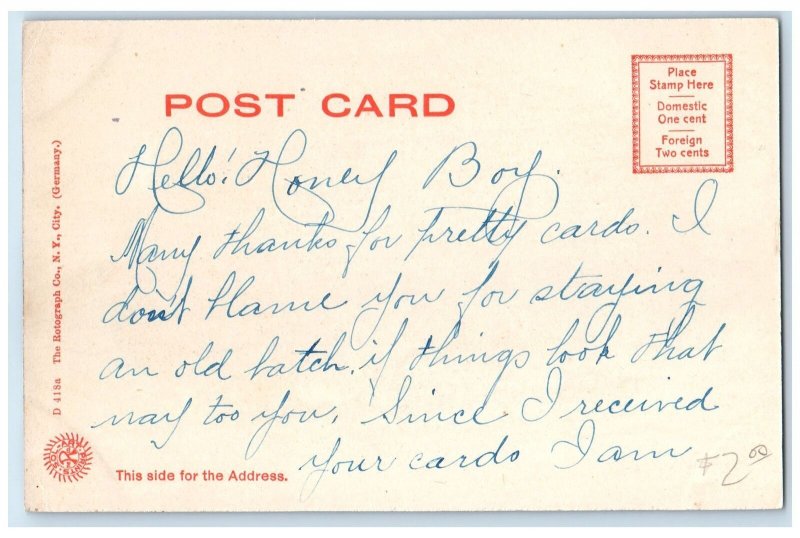 POST CARD
Place
Stamp Here
Domestic
One cent
Foreign
Two cents
Hello! Honey Boy.
Many thanks for pretty cards. I
don't blame you for staying
an old batch, if things look that
way too you. Since I received
your cards I am
$2.00
This side for the Address.
D 418a The Rotograph Co., N. Y., City. (Germany.)